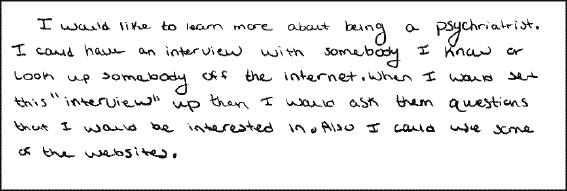 I would like to learn more about being a psychriatrist.
I could have an interview with somebody I know or
look up somebody off the internet. When I would set
this "interview" up then I would ask them questions
that I would be interested in. Also I could use some
of the websites.